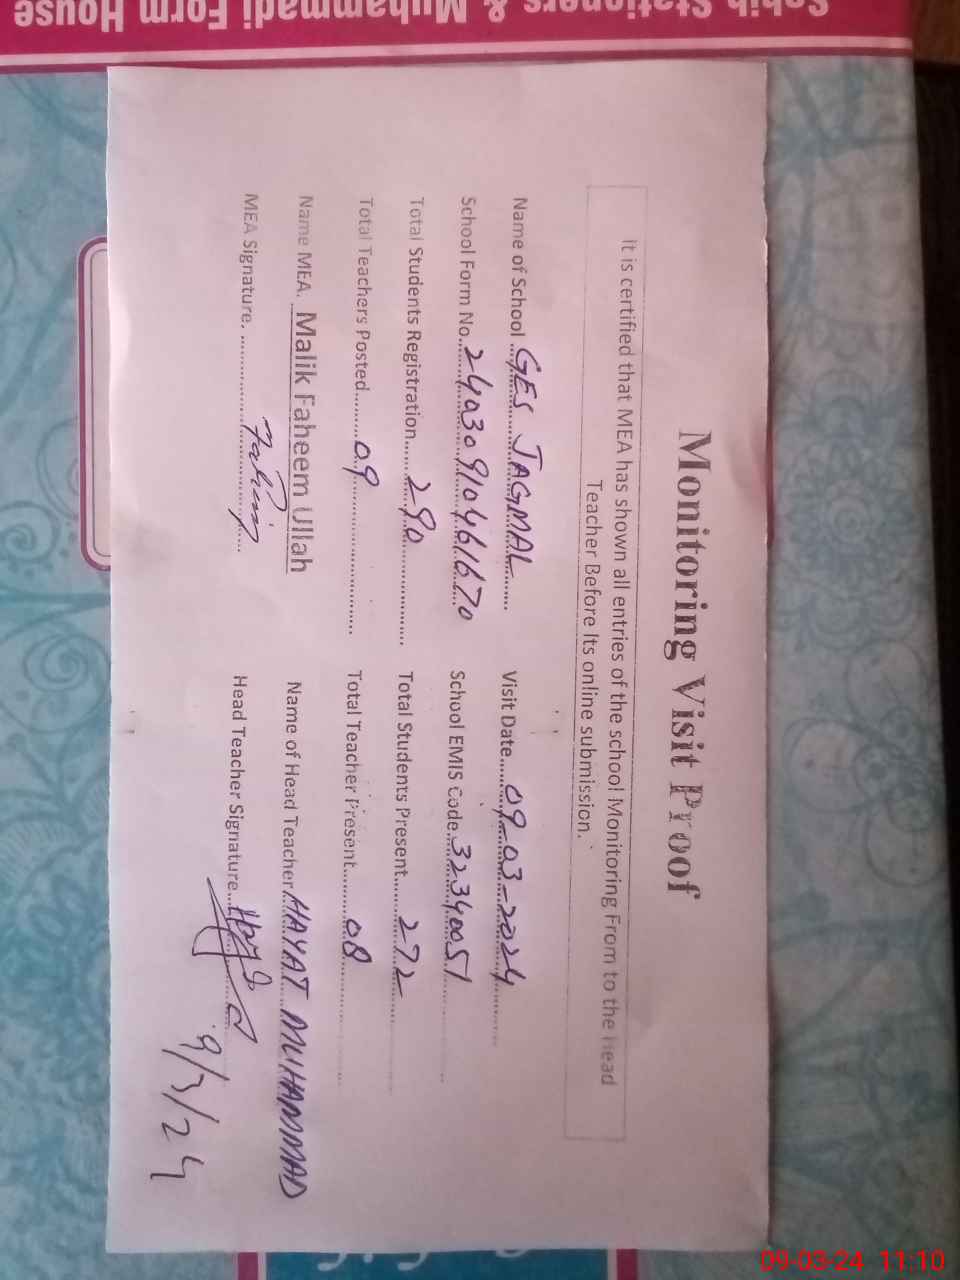 Sahib Stationers & Muhammadi Form House
Monitoring Visit Proof
It is certified that MEA has shown all entries of the school Monitoring From to the Head
Teacher Before Its online submission.
Name of School GES JAGMAL Visit Date 09-03-2024
School Form No. 24030910461670 School EMIS Code 32340051
Total Students Registration 290 Total Students Present 272
Total Teachers Posted 09 Total Teacher Present 08
Name MEA. Malik Faheem Ullah Name of Head Teacher HAYAT MUHAMMAD
MEA Signature. Fahim Head Teacher Signature
9/3/24
09-03-24 11:10